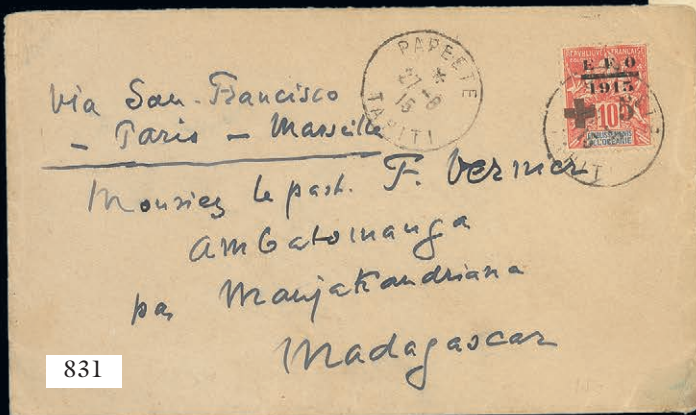 PAPEETE
*
27-8
15
TAHITI
RÉPUBLIQUE FRANÇAISE
E F O
1915
10 5c
DE L'OCÉANIE
via San-Francisco
- Paris - Marseille
Monsieur le past. F. Vernier
Ambatomanga
par Manjakandriana
Madagascar
831